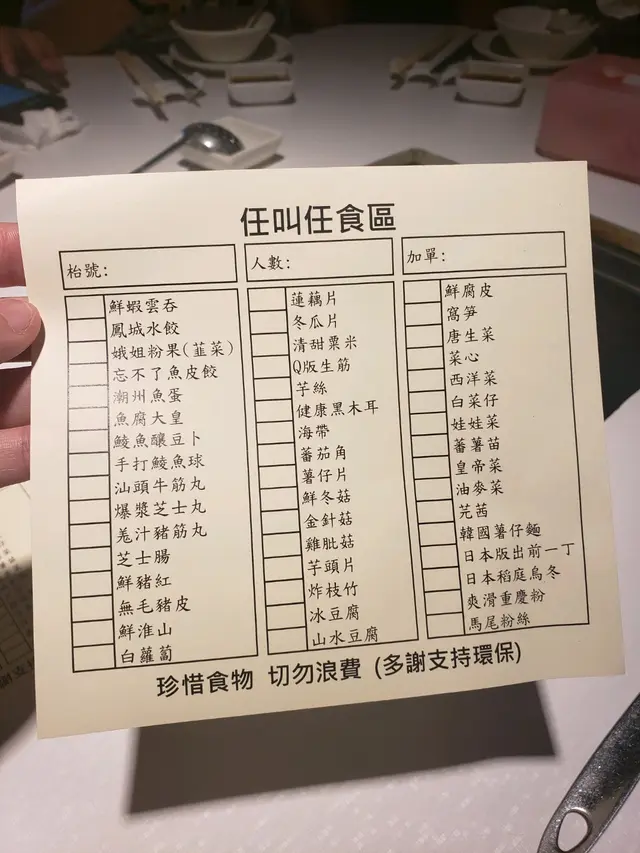 任叫任食區
枱號:
人數:
加單:
鮮蝦雲吞
鳳城水餃
娥姐粉果(韮菜)
忘不了魚皮餃
潮州魚蛋
魚腐大皇
鯪魚釀豆卜
手打鯪魚球
汕頭牛筋丸
爆漿芝士丸
羗汁豬筋丸
芝士腸
鮮豬紅
無毛豬皮
鮮淮山
白蘿蔔
蓮藕片
冬瓜片
清甜粟米
Q版生筋
芋絲
健康黑木耳
海帶
蕃茄角
薯仔片
鮮冬菇
金針菇
雞肶菇
芋頭片
炸枝竹
冰豆腐
山水豆腐
鮮腐皮
窩笋
唐生菜
菜心
西洋菜
白菜仔
娃娃菜
蕃薯苗
皇帝菜
油麥菜
芫茜
韓國薯仔麵
日本版出前一丁
日本稻庭烏冬
爽滑重慶粉
馬尾粉絲
珍惜食物 切勿浪費 (多謝支持環保)